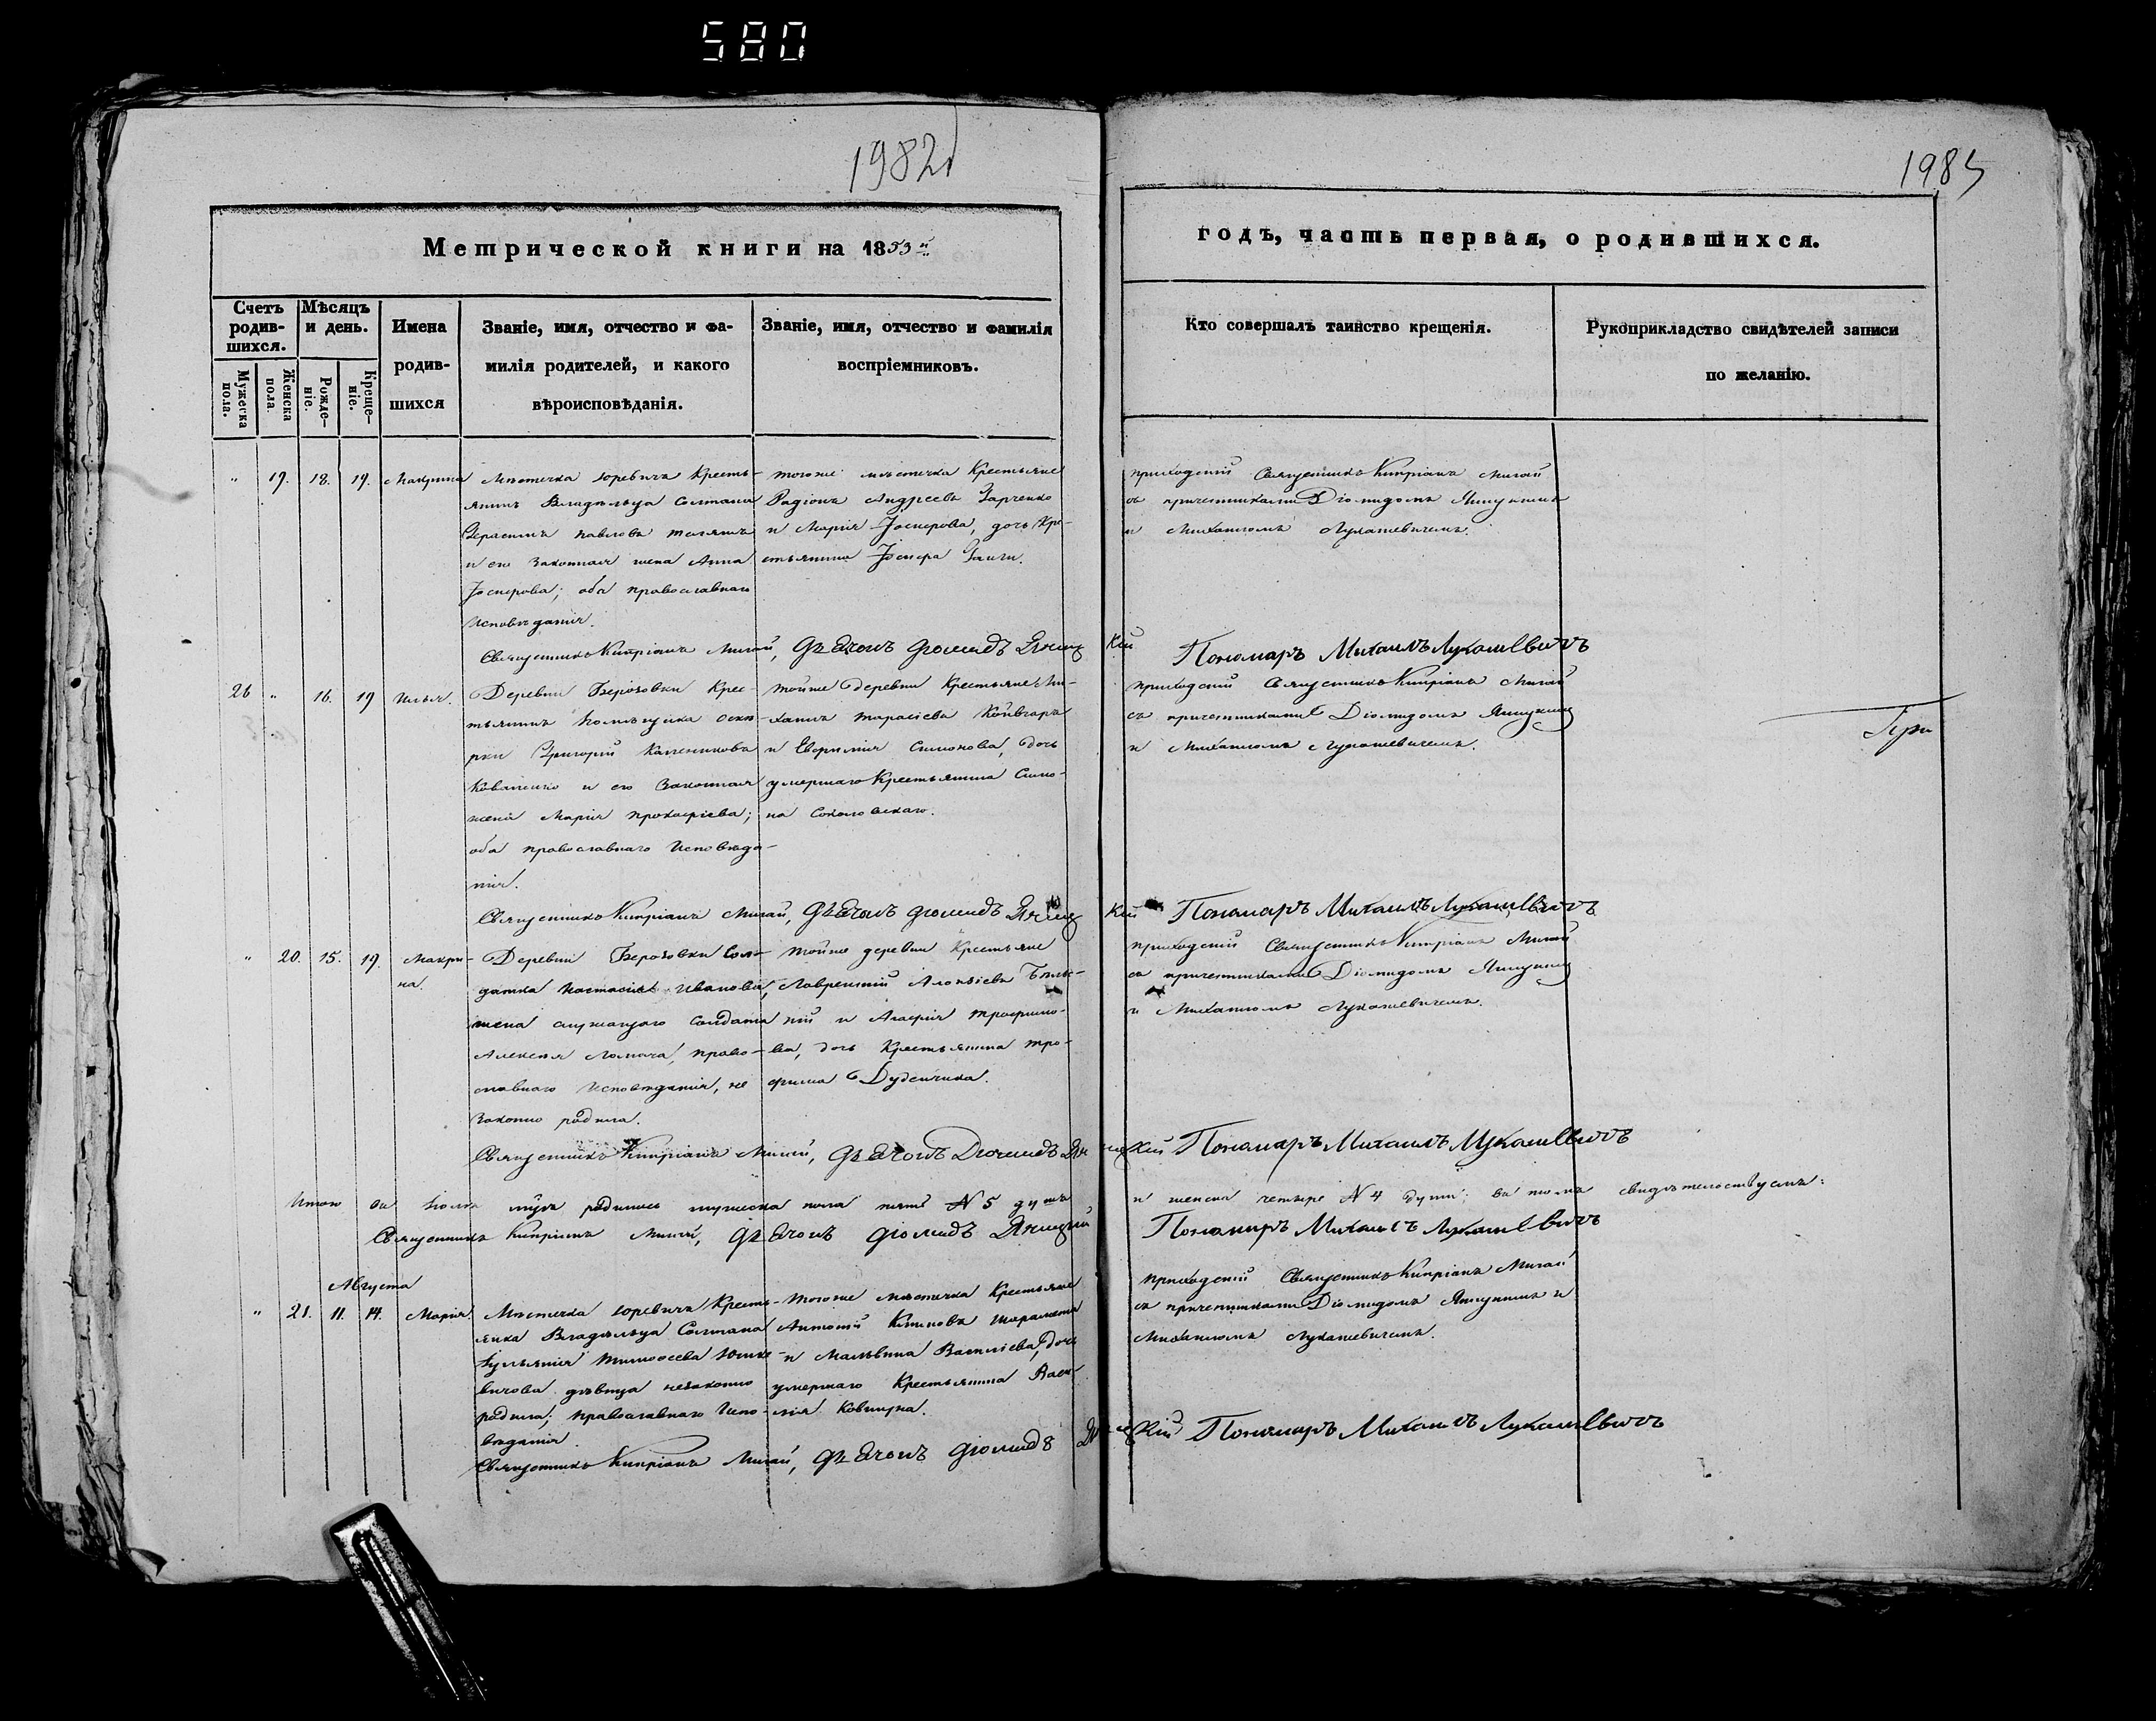 580
1982
1983
Метрической книги на 1853й
годъ, часть первая, о родившихся.
Счетъ родив-шихся.
Мужеска пола.
Женска пола.
Мѣсяцъ и день.
Рожде-ніе.
Креще-ніе.
Имена
родив-
шихся
Званіе, имя, отчество и фа-
милія родителей, и какого
вѣроисповѣданія.
Званіе, имя, отчество и фамилія
воспріемниковъ.
Кто совершалъ таинство крещенія.
Рукоприкладство свидѣтелей записи
по желанію.
" 19. 18. 19. Макрина
Мѣстечка Юревичъ Кресть-
янинъ Владѣльца Солтана
Герасимъ Павловъ
и его законная жена Анна
Іосифова; оба православнаго
исповѣданія.
тогоже мѣстечка Крестьяне
Радіонъ Андреевъ Харченко
и Марія Іосифова, дочь Кре-
стьянина Іосифа
приходскій Священникъ Кипріанъ Мигай
съ причетниками Діомидомъ
и Михаиломъ Лукашевичемъ.
Священникъ Кипріанъ Мигай, Дьячокъ Діомидъ
Пономаръ Михаилъ Лукашевичъ
26 " 16. 19 Илья.
Деревни Березовки Крес-
тьянинъ помѣщика Оскі-
рки Григорій Калениковъ
Коваленко и его Законная
жена Марія Прокофіева;
оба православнаго Исповѣда-
нія.
тойже деревни Крестьяне Ми-
хаилъ Тарасіевъ
и Евфимія Симонова, дочь
умершаго Крестьянина Симо-
на Соколовскаго.
приходскій Священникъ Кипріанъ Мигай
съ причетниками Діомидомъ
и Михаиломъ Лукашевичемъ.
Гри
Священникъ Кипріанъ Мигай, Дьячокъ Діомидъ
Пономаръ Михаилъ Лукашевичъ
" 20. 15. 19. Макри-
на.
Деревни Березовки Сол-
датка Настасія Иванова,
жена служащаго Солдата
Алексея Ломача, право-
славнаго Исповѣданія, не
законно родила.
тойже деревни Крестьяне
Лаврентій Алексіевъ
и Агафія Трофимо-
ва, дочь Крестьянина Тро-
фима Дудейчика.
приходскій Священникъ Кипріанъ Мигай
съ причетниками Діомидомъ
и Михаиломъ Лукашевичемъ.
Священникъ Кипріанъ Мигай, Дьячокъ Діомидъ
Пономаръ Михаилъ Лукашевичъ
Итого въ родилось мужеска пола пять № 5 душъ
и женска четыре № 4 души; въ томъ свидѣтельствуемъ:
Священникъ Кипріанъ Мигай, Дьячокъ Діомидъ
Пономаръ Михаилъ Лукашевичъ
Августа
" 21. 11. 14. Марія.
Мѣстечка Юревичъ Кресть-
янка Владѣльца Солтана
Тимофеева
дѣвица незаконно
родила; православнаго Испо-
вѣданія.
тогоже мѣстечка Крестьяне
Антоній
и Мальвина Василіева, дочь
умершаго Крестьянина Васи-
лія
приходскій Священникъ Кипріанъ Мигай
съ причетниками Діомидомъ и
Михаиломъ Лукашевичемъ.
Священникъ Кипріанъ Мигай, Дьячокъ Діомидъ
Пономаръ Михаилъ Лукашевичъ